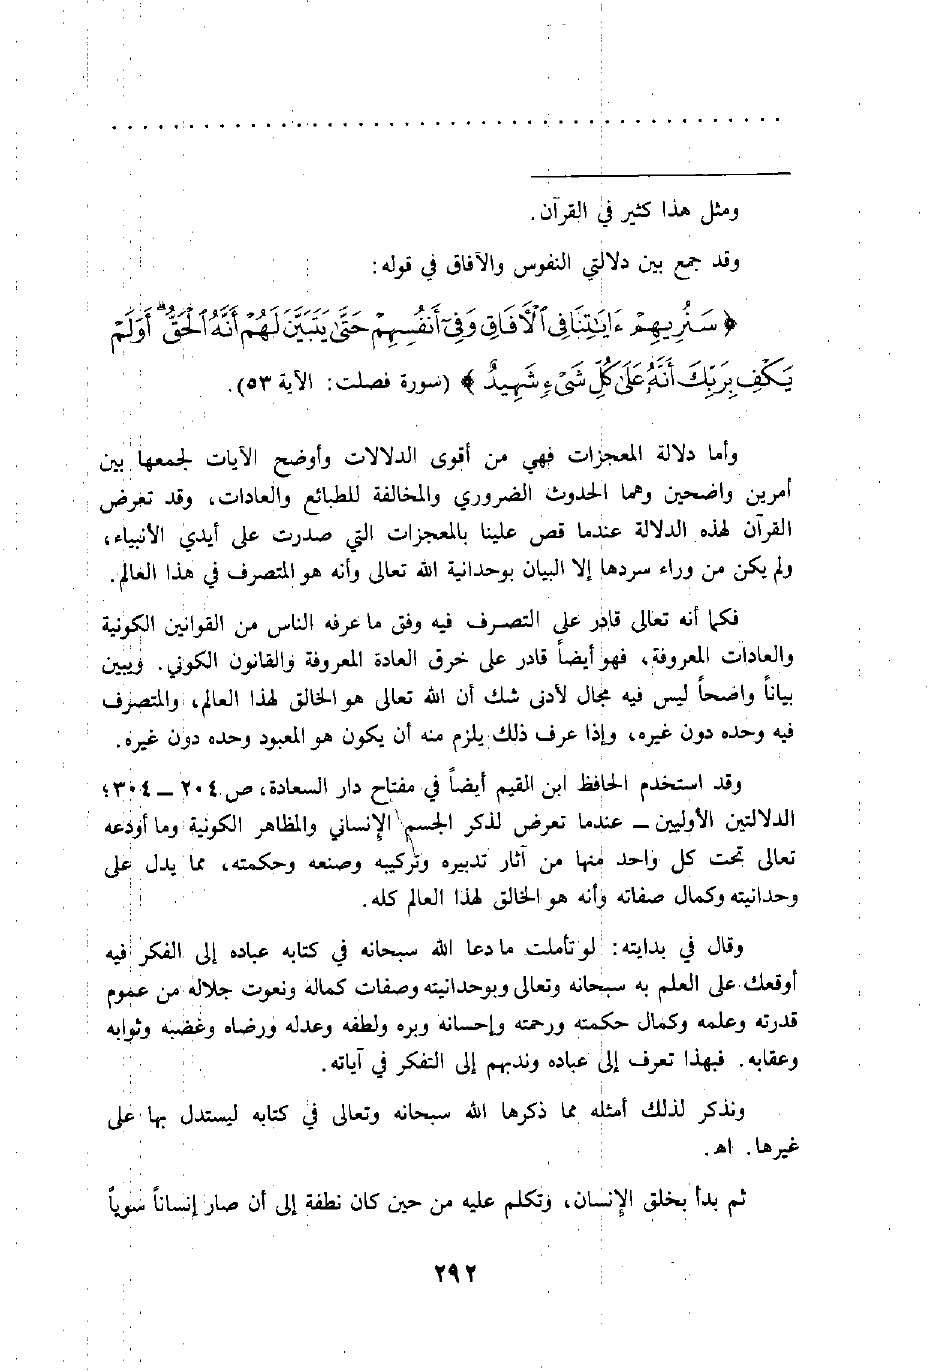 ومثل هذا كثير في القرآن.
وقد جمع بين دلالتي النفوس والآفاق في قوله:
﴿ سَنُرِيهِمْ ءَايَٰتِنَا فِي ٱلْأٓفَاقِ وَفِىٓ أَنفُسِهِمْ حَتَّىٰ يَتَبَيَّنَ لَهُمْ أَنَّهُ ٱلْحَقُّ ۗ أَوَلَمْ
يَكْفِ بِرَبِّكَ أَنَّهُۥ عَلَىٰ كُلِّ شَىْءٍ شَهِيدٌ ﴾ (سورة فصلت: الآية ٥٣).
وأما دلالة المعجزات فهي من أقوى الدلالات وأوضح الآيات لجمعها بين
أمرين واضحين وهما الحدوث الضروري والمخالفة للطبائع والعادات، وقد تعرض
القرآن لهذه الدلالة عندما قص علينا بالمعجزات التي صدرت على أيدي الأنبياء،
ولم يكن من وراء سردها إلا البيان بوحدانية الله تعالى وأنه هو المتصرف في هذا العالم.
فكما أنه تعالى قادر على التصرف فيه وفق ما عرفه الناس من القوانين الكونية
والعادات المعروفة، فهو أيضاً قادر على خرق العادة المعروفة والقانون الكوني. ويبين
بياناً واضحاً ليس فيه مجال لأدنى شك أن الله تعالى هو الخالق لهذا العالم، والمتصرف
فيه وحده دون غيره، وإذا عرف ذلك يلزم منه أن يكون هو المعبود وحده دون غيره.
وقد استخدم الحافظ ابن القيم أيضاً في مفتاح دار السعادة، ص ٢٠٤ – ٣٠٤؛
الدلالتين الأوليين – عندما تعرض لذكر الجسم الإنساني والمظاهر الكونية وما أودعه
تعالى تحت كل واحد منها من آثار تدبيره وتركيبه وصنعه وحكمته، مما يدل على
وحدانيته وكمال صفاته وأنه هو الخالق لهذا العالم كله.
وقال في بدايته: لو تأملت ما دعا الله سبحانه في كتابه عباده إلى الفكر فيه
أوقعك على العلم به سبحانه وتعالى وبوحدانيته وصفات كماله ونعوت جلاله من عموم
قدرته وعلمه وكمال حكمته ورحمته وإحسانه وبره ولطفه وعدله ورضاه وغضبه وثوابه
وعقابه. فبهذا تعرف إلى عباده وندبهم إلى التفكر في آياته.
ونذكر لذلك أمثله مما ذكرها الله سبحانه وتعالى في كتابه ليستدل بها على
غيرها. اهـ.
ثم بدأ بخلق الإنسان، وتكلم عليه من حين كان نطفة إلى أن صار إنساناً سوياً
٢٩٢